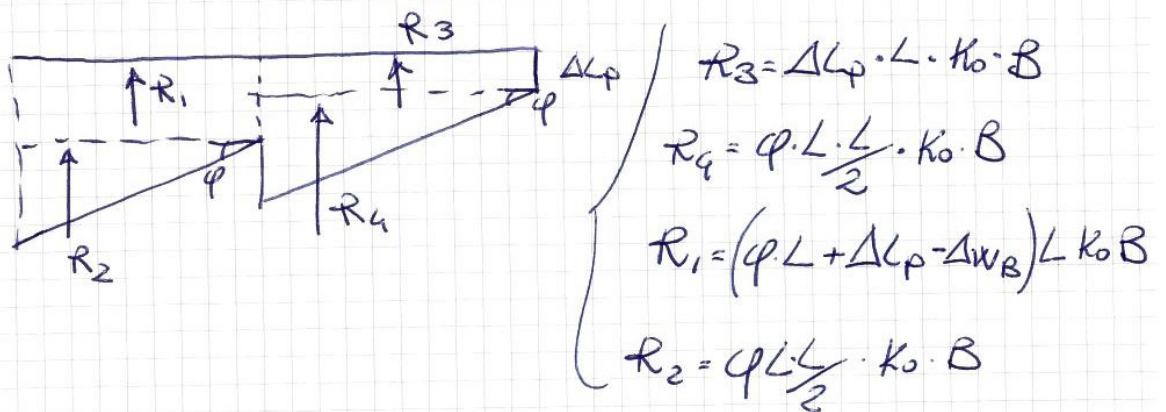 R3
R1
ΔLp
φ
φ
R4
R2
R3 = ΔLp · L · K0 · B
R4 = φ · L · L/2 · K0 · B
R1 = (φ · L + ΔLp - ΔwB) L K0 B
R2 = φ L · L/2 · K0 · B